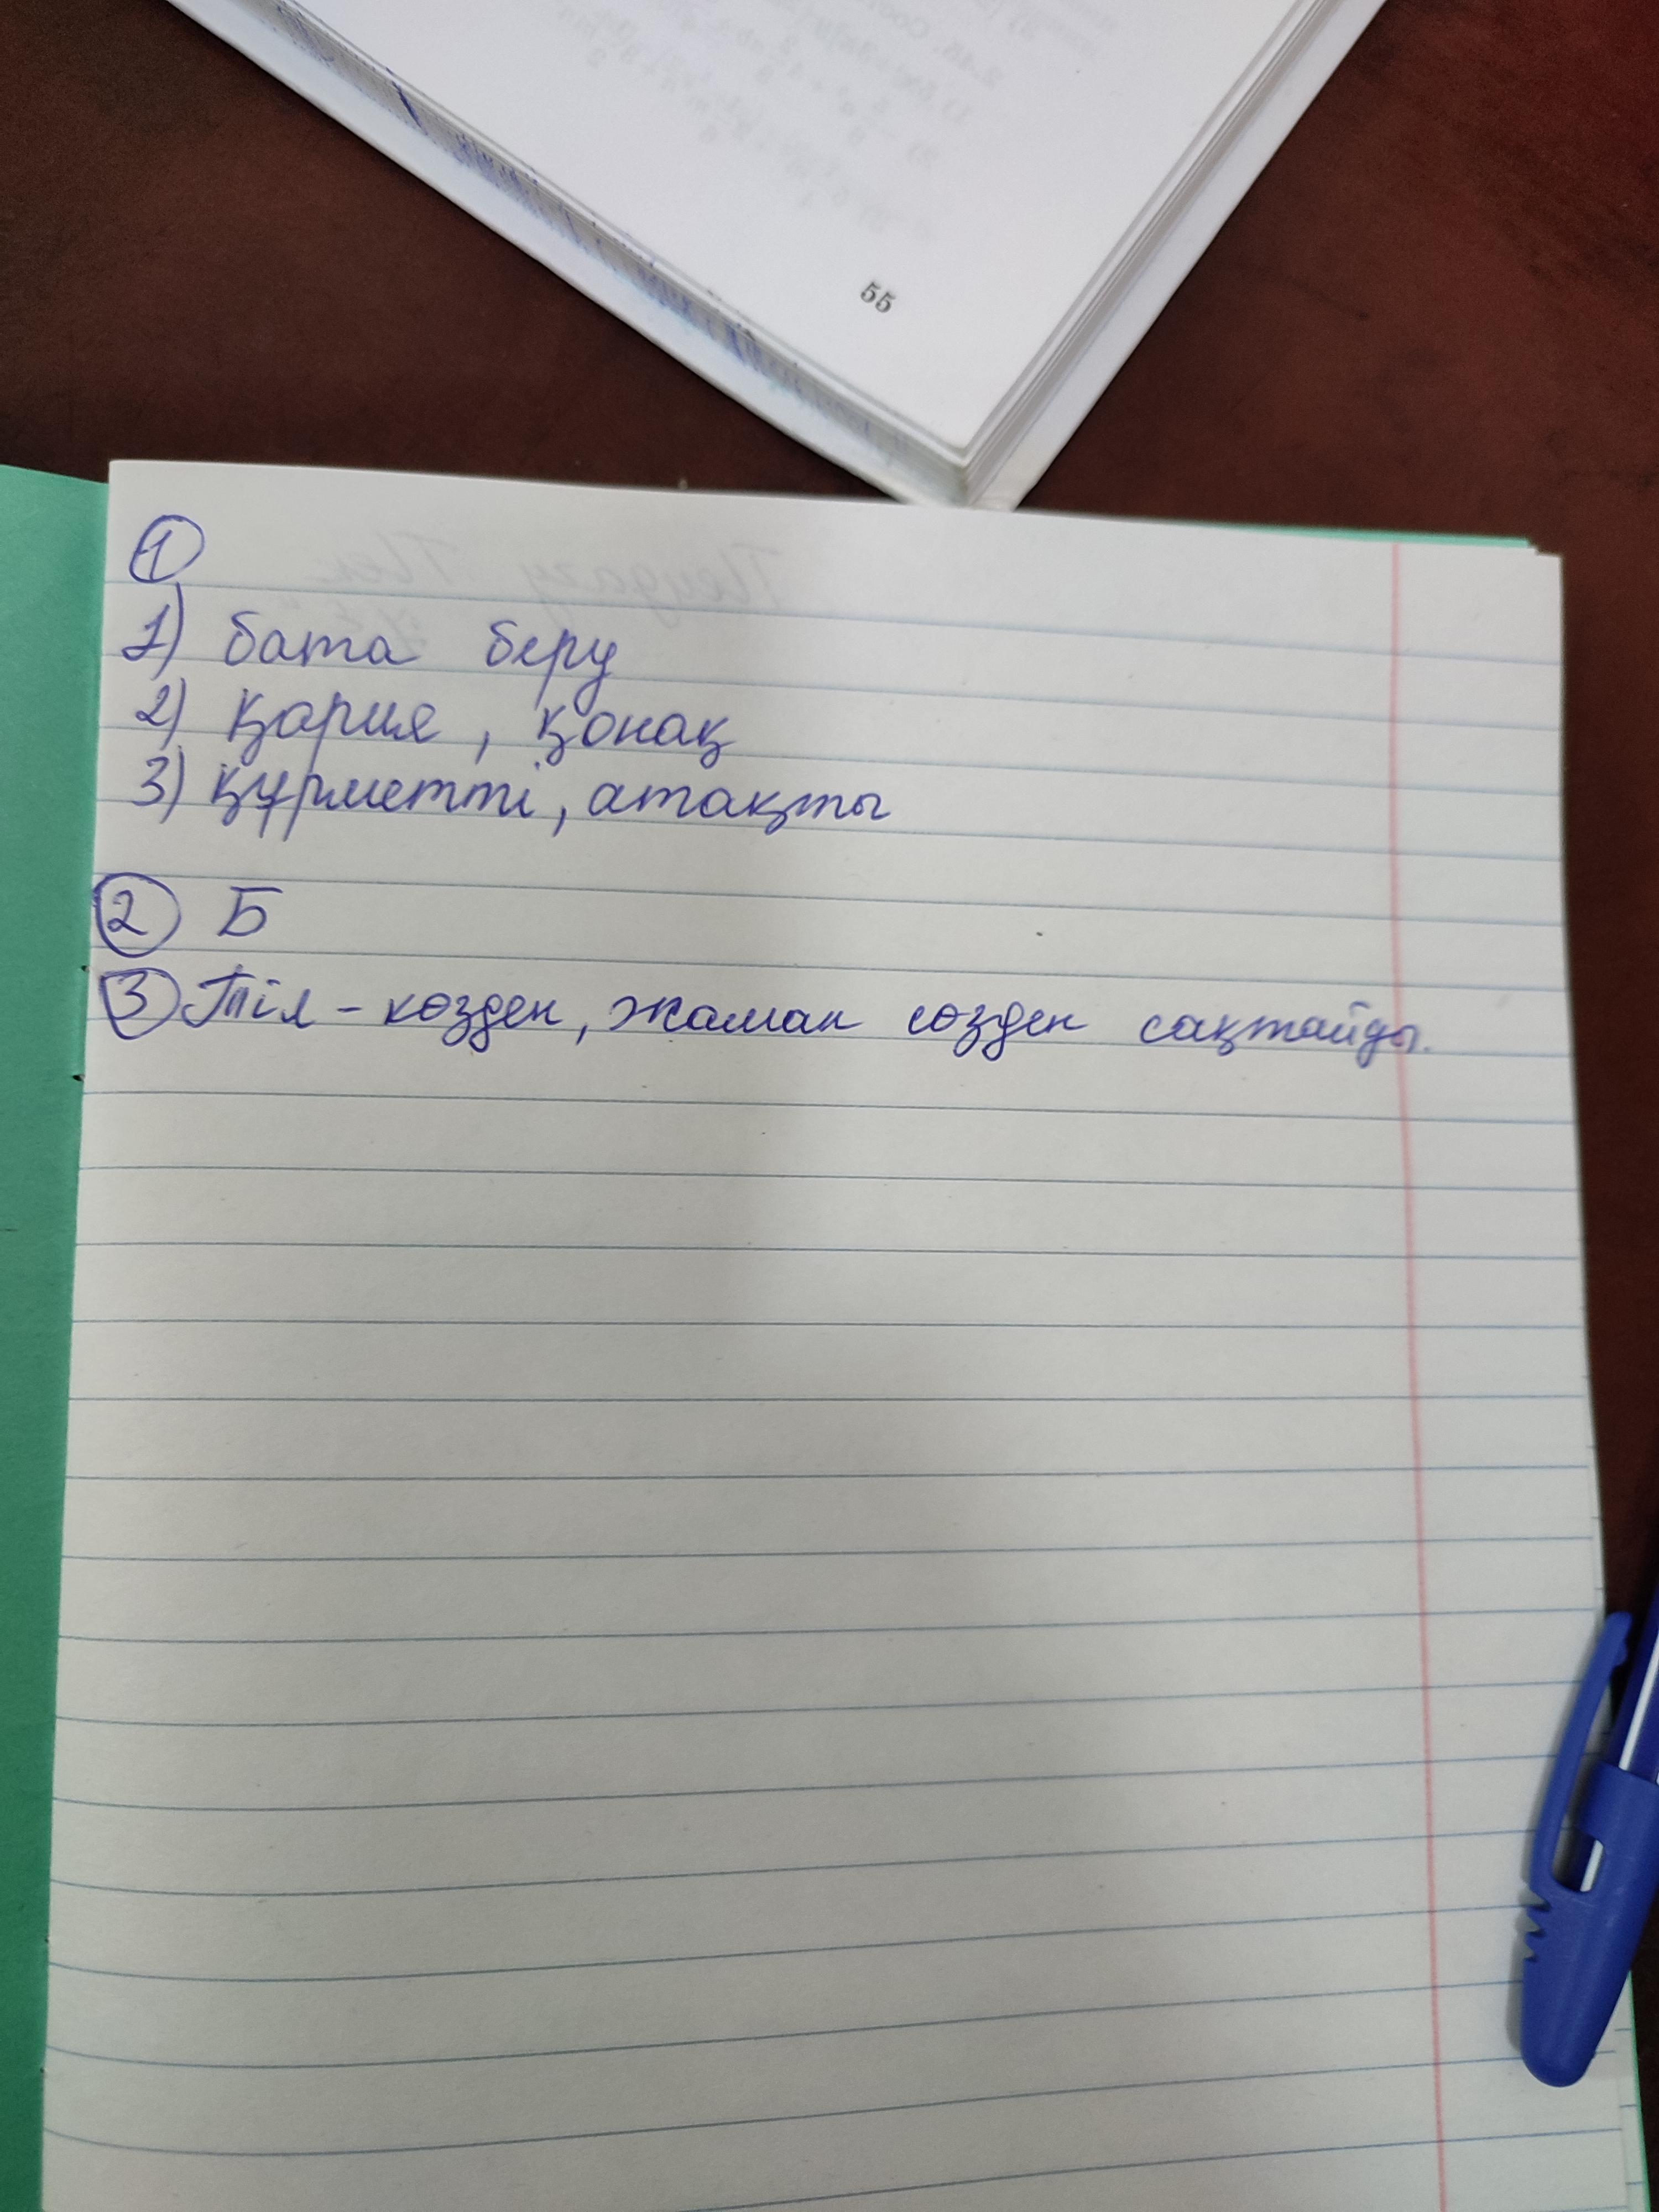 55
1
1) бата беру
2) қария, қонақ
3) құрметті, атақты
2 Б
3 Тіл - көзден, жаман сөзден сақтайды.